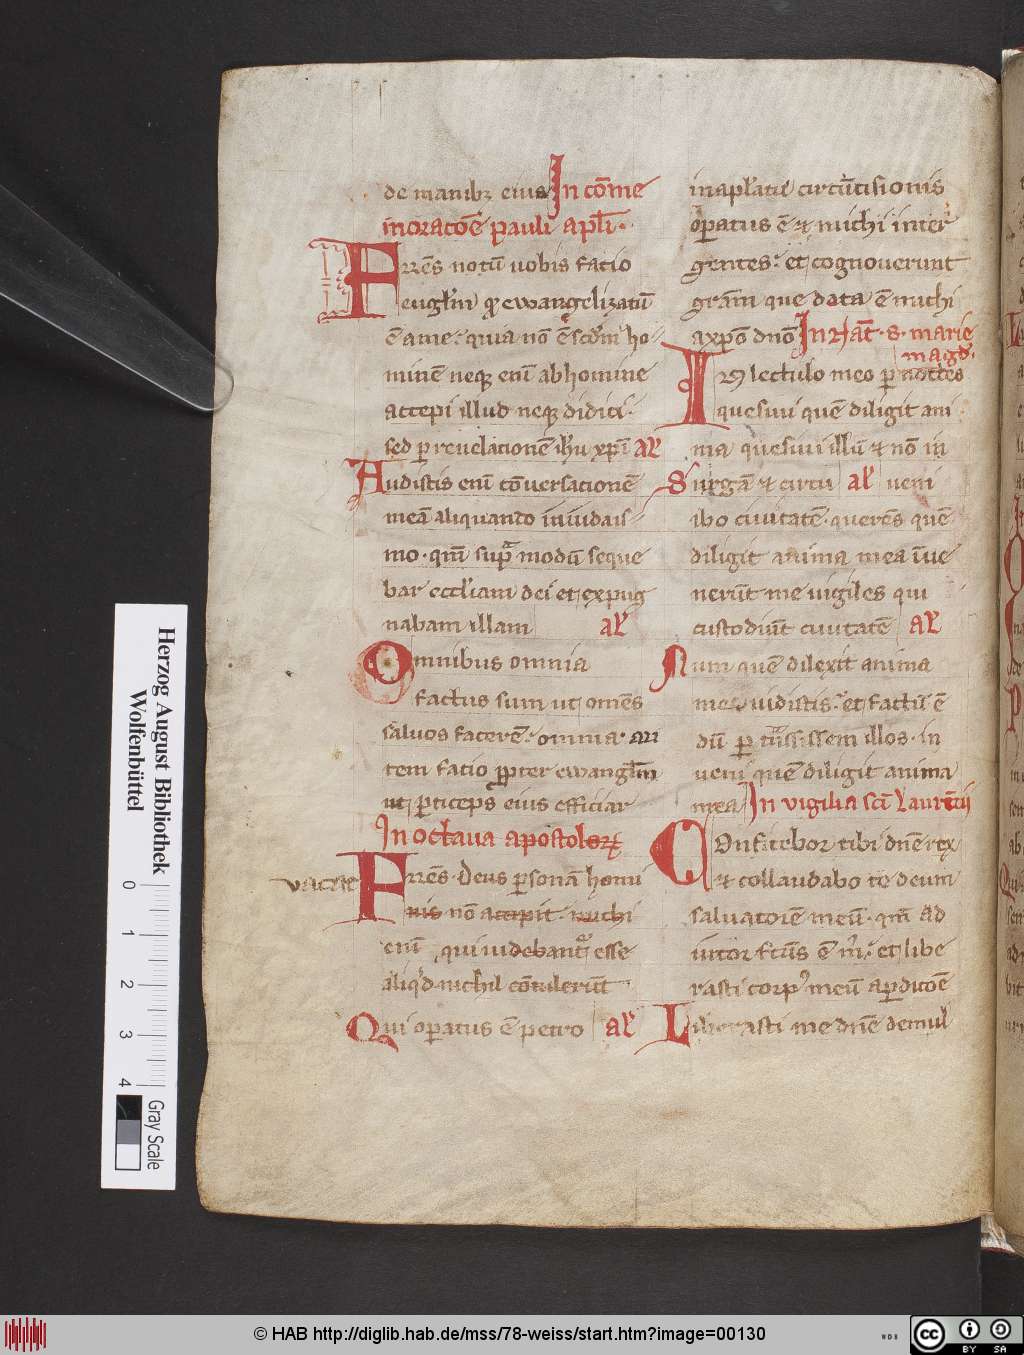 de manibꝫ eius In cōme
moracōe pauli apl̄i.
Frēs notū uobis facio
euglīm qđ ewangelizatū
ē a me: quia nō ē scđm ho-
minē neqꝫ enī ab homine
accepi illud neqꝫ didici.
sed p reuelacionē ihu xpī al̄
Audistis enī cōuersacionē
meā aliquando in iudais-
mo. qm̄ supra modū seque
bar eccl̄iam dei et expug
nabam illam al̄
Omnibus omnia
factus sum ut omēs
saluos facerē. omnia au
tem facio ppter ewanglm̄
ut pticeps eius efficiar
In octaua apostoloꝝ
vacat Frēs. Deus psonā homi
nis nō accepit. michi
enī qui uidebantꝰ esse
aliqđ nichil cōtulerūt
Qui opatus ē petro al̄
in apl̄atū circūcisionis
opatus ē ⁊ michi inter
gentes: et cognouerunt
grām que data ē michi
a xpō dnō In Nat̄. s. marie
magđ.
IN lectulo meo p noctes
quesiui quē diligit ani
ma quesiui illū ⁊ nō in
Surgā ⁊ circu al̄ ueni
ibo ciuitatē. querēs quē
diligit anima mea īue
nerūt me uigiles qui
custodiūt ciuitatē al̄
Num quē dilexit anima
mea uidistis: et factū ē
dū p tnsissem illos. in
ueni quē diligit anima
mea In vigilia scī Laurētii
COnfitebor tibi dnē rex
⁊ collaudabo te deum
saluatorē meū. qm̄ ad
iutor fctūs ē m̄. et libe
rasti corpꝰ meū a pdicōe
Liberasti me dnē de mul
Herzog August Bibliothek
Wolfenbüttel
0 1 2 3 4
Gray Scale
© HAB http://diglib.hab.de/mss/78-weiss/start.htm?image=00130
WDB
cc BY SA